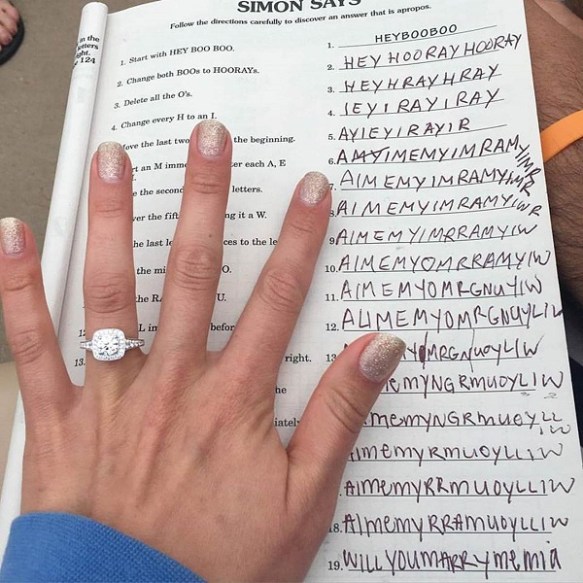 SIMON SAYS
Follow the directions carefully to discover an answer that is apropos.
in the
etters
ght.
124
1. Start with HEY BOO BOO.
2. Change both BOOs to HOORAYs.
3. Delete all the O's.
4. Change every H to an I.
ove the last two the beginning.
rt an M imme er each A, E
e the second letters.
ver the fift ng it a W.
he last le ces to the le
the mi O.
he R U.
12 L im befor
13. right.
he
iatel
1. HEYBOOBOO
2. HEY HOORAY HOORAY
3. HEYHRAYHRAY
4. IEYIRAYIRAY
5. AYIEYIRAYIR
6. AMYIMEMYIMRAMYIMR
AIMEMYIMRAMYIMR
AIMEMYIMRAMYIWR
9. AIMEMYIMRRAMYIW
10. AIMEMYOMRRAMYIW
11. AIMEMYOMRGNUYIW
12. ALIMEMYOMRGNUYLIW
13. YOMRGNUOYLIW
EMYNGRMUOYLIW
MEMYNGRMUOYLLIW
IMEMYRMUOYLLIW
AIMEMYRRMUOYLLIW
18. AIMEMYRRAMUOYLLIW
19. WILLYOUMARRYMEMIA